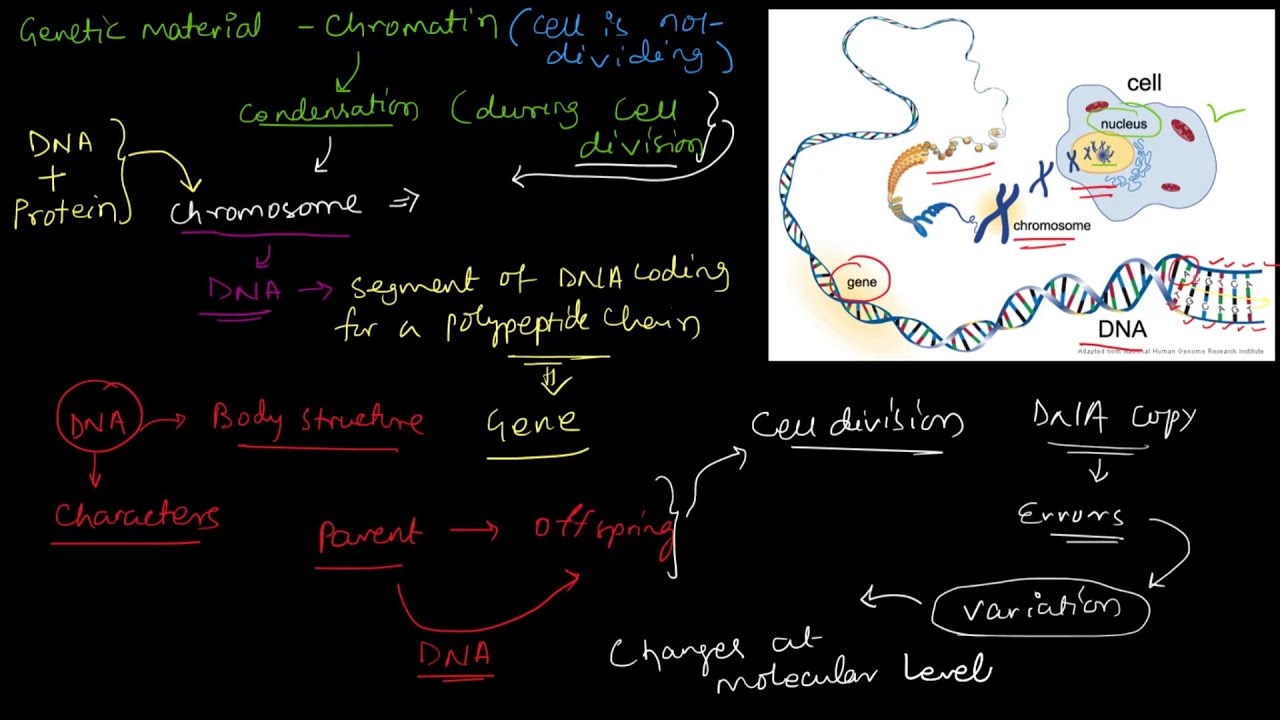 Genetic material - Chromatin (cell is not-
dividing)
Condensation (during cell
division)
DNA
+
Protein
Chromosome ⇒
DNA → segment of DNA coding
for a polypeptide chain
Gene
DNA → Body structure
Characters
Parent → offspring
DNA
Cell division
DNA copy
Errors
variation
Changes at
molecular level
cell
nucleus
chromosome
gene
DNA
Adapted from National Human Genome Research Institute